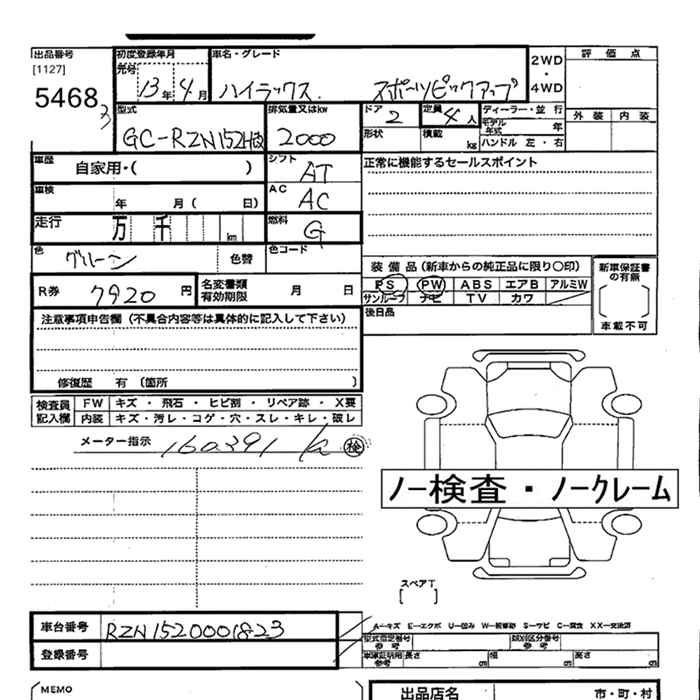 出品番号
[1127]
5468
3
初度登録年月
元号
13年 4月
車名・グレード
ハイラックス スポーツピックアップ
2WD
・
4WD
評価点
外装 内装
型式
GC-RZN152H改
排気量又はkw
2000
ドア
2
定員
4人
形状
積載
kg
ディーラー・並行
モデル年式 年
ハンドル 左・右
車歴
自家用・( )
シフト
AT
正常に機能するセールスポイント
車検
年 月( 日)
AC
AC
走行
万 千 km
燃料
G
色
グリーン
色替
色コード
装備品(新車からの純正品に限り〇印)
PS PW ABS エアB アルミW
サンルーフ ナビ TV カワ
新車保証書の有無
車載不可
R券
7920円
名変書類有効期限
月 日
後日品
注意事項申告欄(不具合内容等は具体的に記入して下さい)
修復歴 有(箇所 )
検査員記入欄
FW キズ・飛石・ヒビ割・リペア跡・X要
内装 キズ・汚レ・コゲ・穴・スレ・キレ・破レ
メーター指示
160391 K 検
ノー検査・ノークレーム
スペアT
[ ]
車台番号
RZN1520001823
登録番号
A-キズ E-エクボ U-凹み W-板修跡 S-サビ C-腐食 XX-交換済
型式指定番号
参考
類別区分番号
参考
車庫証明用
参考
長さ cm
幅 cm
高さ cm
MEMO
出品店名
市・町・村